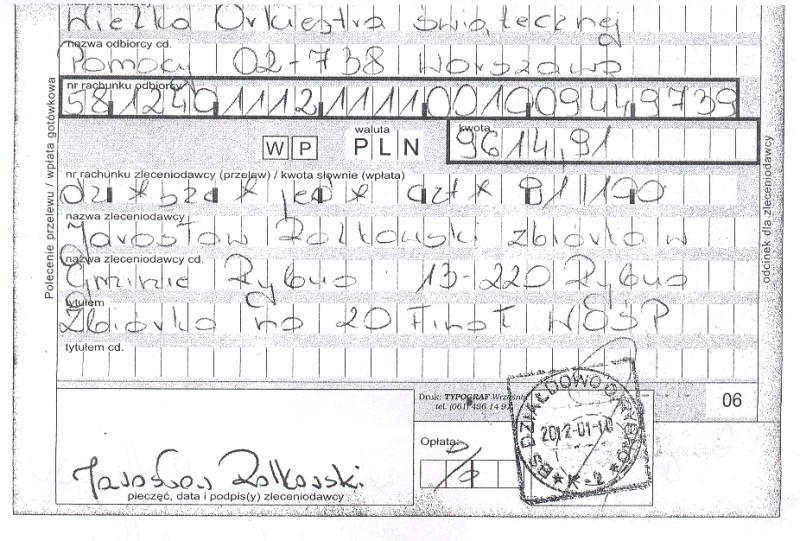 Wielka Orkiestra Świątecznej
nazwa odbiorcy cd.
Pomocy 02-738 Warszawa
nr rachunku odbiorcy
58 1240 1112 1111 0010 0944 9739
W P
waluta
PLN
kwota
9614,91
nr rachunku zleceniodawcy (przelew) / kwota słownie (wpłata)
dzi * sze * jed * czt * 91/100
nazwa zleceniodawcy
Jarosław Rolkowski zbiórka w
nazwa zleceniodawcy cd.
Gminie Rybno 13-220 Rybno
tytułem
Zbiórka na 20 Finał WOŚP
tytułem cd.
Polecenie przelewu / wpłata gotówkowa
odcinek dla zleceniodawcy
Druk: TYPOGRAF Września
tel. (061) 436 14 9
06
Opłata:
BS DZIAŁDOWO O/RYBNO
2012-01-10
K-2
Jarosław Rolkowski
pieczęć, data i podpis(y) zleceniodawcy